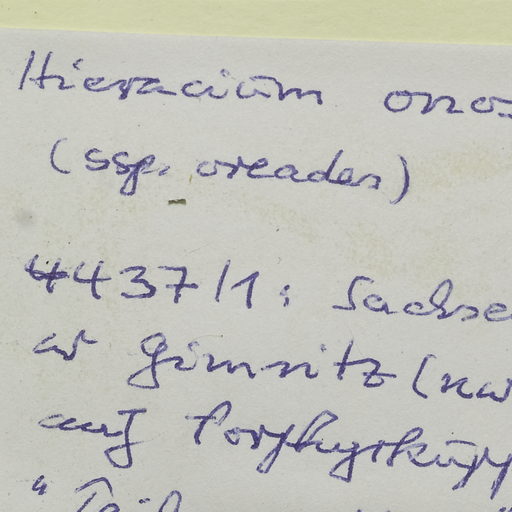 Hieracium ono
(ssp. oreades)
4437/1: Sachse
w Gimritz (nw
auf Porphyrkupp